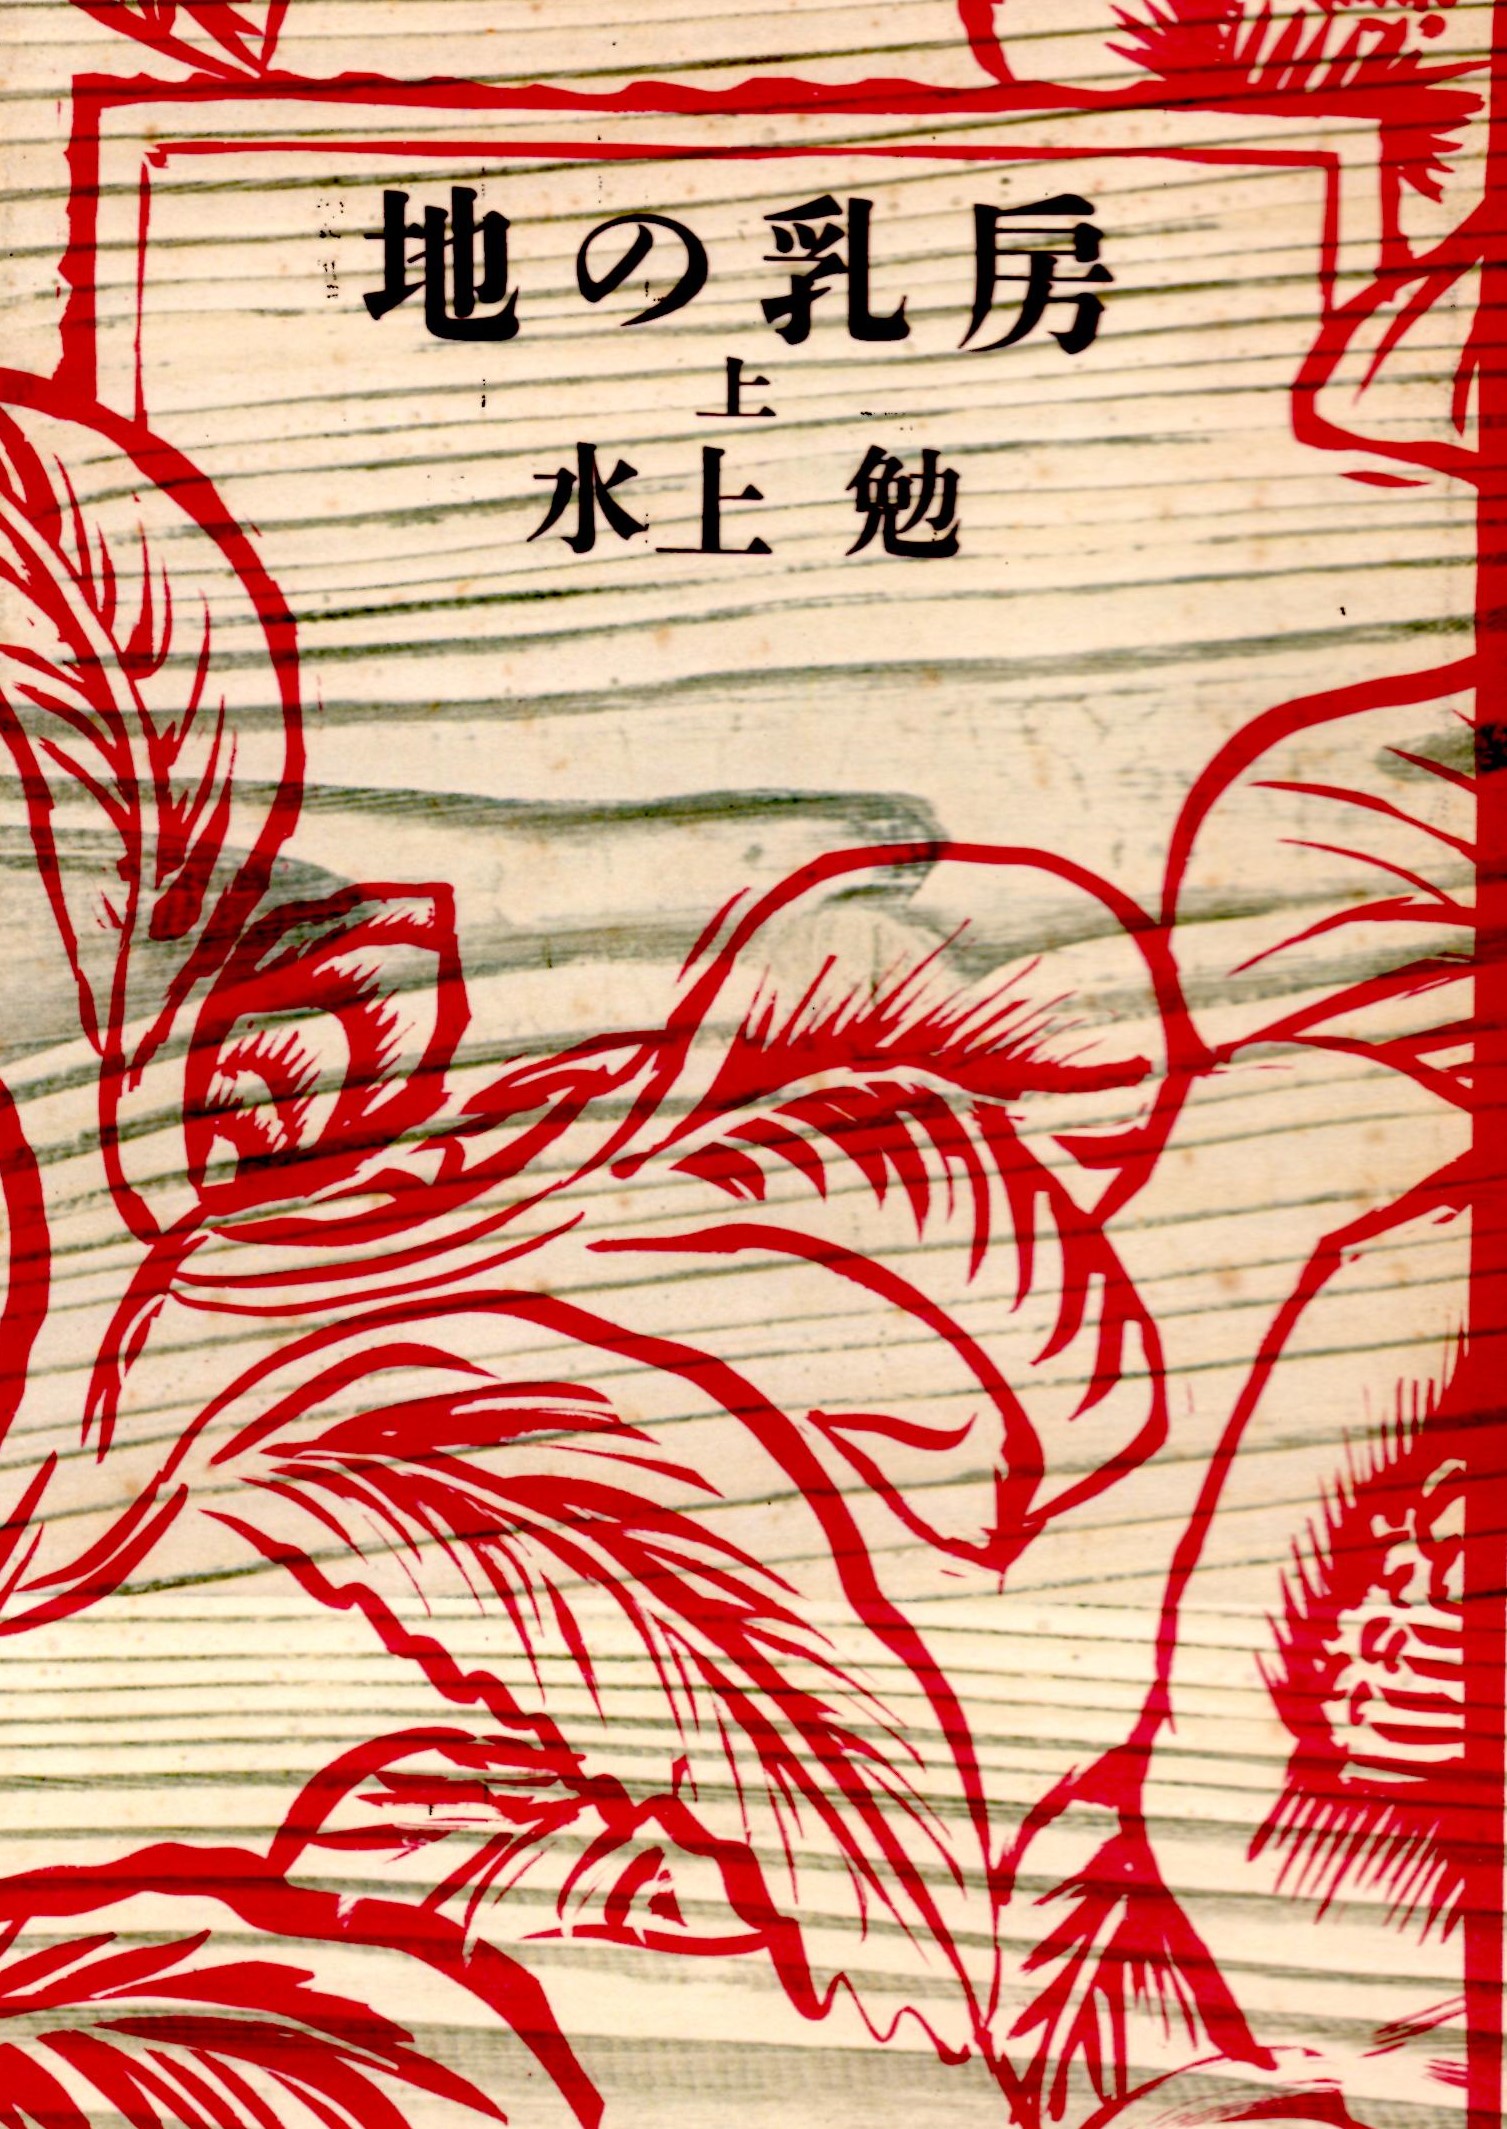 地の乳房
上
水上 勉